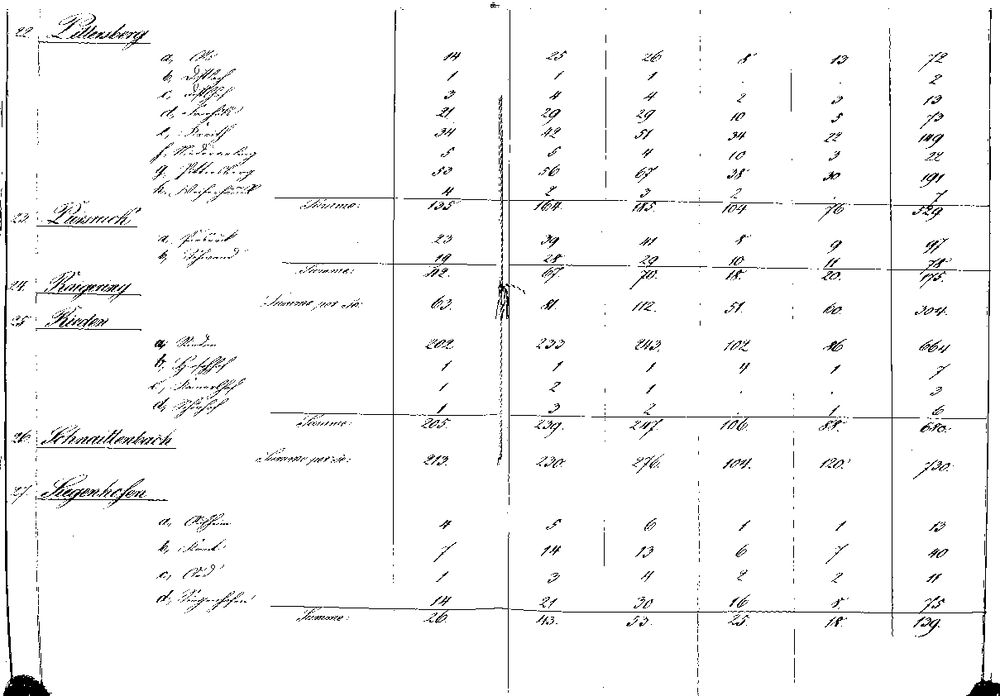 22. Pittersberg
a, 14 25 26 8 13 72
b, 1 1 1 . . 2
c, 3 4 4 2 3 13
d, 21 29 29 10 5 73
e, Kreith 34 42 51 34 22 149
f, 5 5 4 10 3 22
g, Pittersberg 53 56 67 38 30 191
h, 4 2 3 2 . 7
Summe: 135 164. 185. 104 76 529
23.
a, 23 39 41 8 9 97
b, Schwand 19 28 29 10 11 78
Summe: 42. 67 70. 18. 20. 175.
24. Raigering
Summe per se: 63. 81. 112. 51. 60. 304.
25. Rieden
a, Rieden 202 233 243. 102 86 664
b, 1 1 1 4 1 7
c, 1 2 1 . . 3
d, 1 3 2 . 1 6
Summe: 205. 239. 247. 106. 88. 680.
26. Schnaittenbach
Summe per se: 213. 230. 276. 104. 120. 730.
27. Siegenhofen
a, 4 5 6 1 1 13
b, 7 14 13 6 7 40
c, 1 3 4 2 2 11
d, Siegenhofen 14 21 30 16 8. 75
Summe: 26. 43. 53. 25. 18. 139.